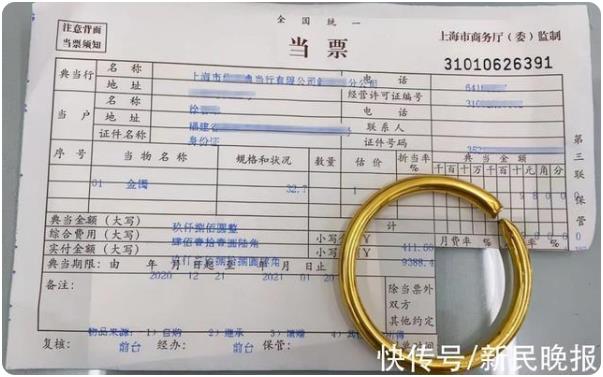 全国统一
注意背面
当票须知
当票
上海市商务厅（委）监制
31010626391
典当行 名称 上海市 典当行有限公司 分公司 电话 641
地址 经营许可证编号 310
当户 名称 徐 电话
地址 福建省 联系人
证件名称 身份证 证件号码 352
序号 当物名称 规格和状况 数量 估价 折当率% 典当金额
千百十万千百十元角分
01 金镯 32.7 1
典当金额（大写） 玖仟捌佰圆整 计
综合费用（大写） 肆佰壹拾壹圆陆角 小写 ¥ 411.60 月费率 %
实付金额（大写） 小写 ¥ 9388.4 %
典当期限：由 年 月 日起至 年 月 日止
2020 12 21 2021 01 20
备注：
除当票外
双方
其他约定
当物来源：1）自购 2）继承 3）馈赠 4）其
复核： 前台 经办： 前台 保管：
第三联 保管
快传号/新民晚报